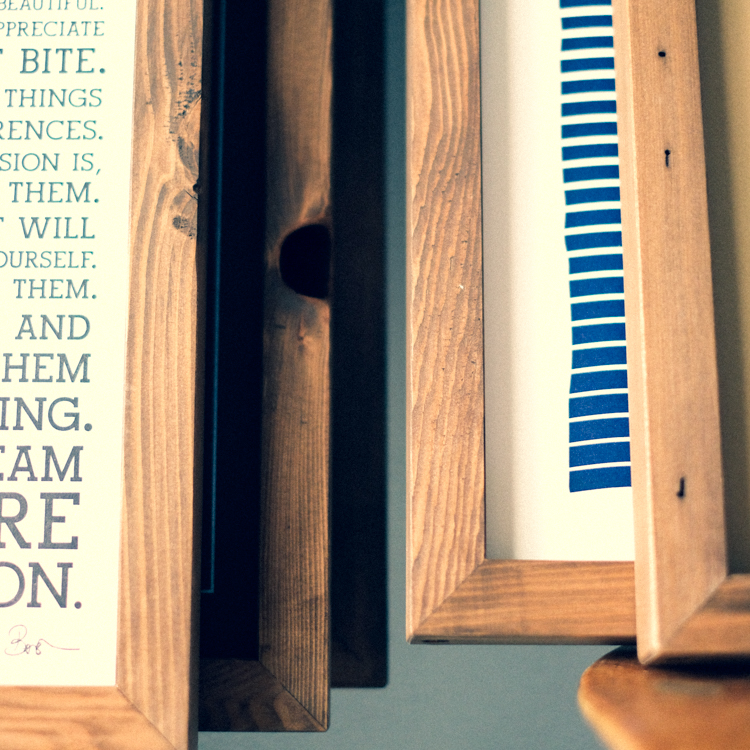 BEAUTIFUL.
PPRECIATE
BITE.
THINGS
RENCES.
SION IS,
THEM.
WILL
OURSELF.
THEM.
AND
HEM
ING.
EAM
RE
ON.